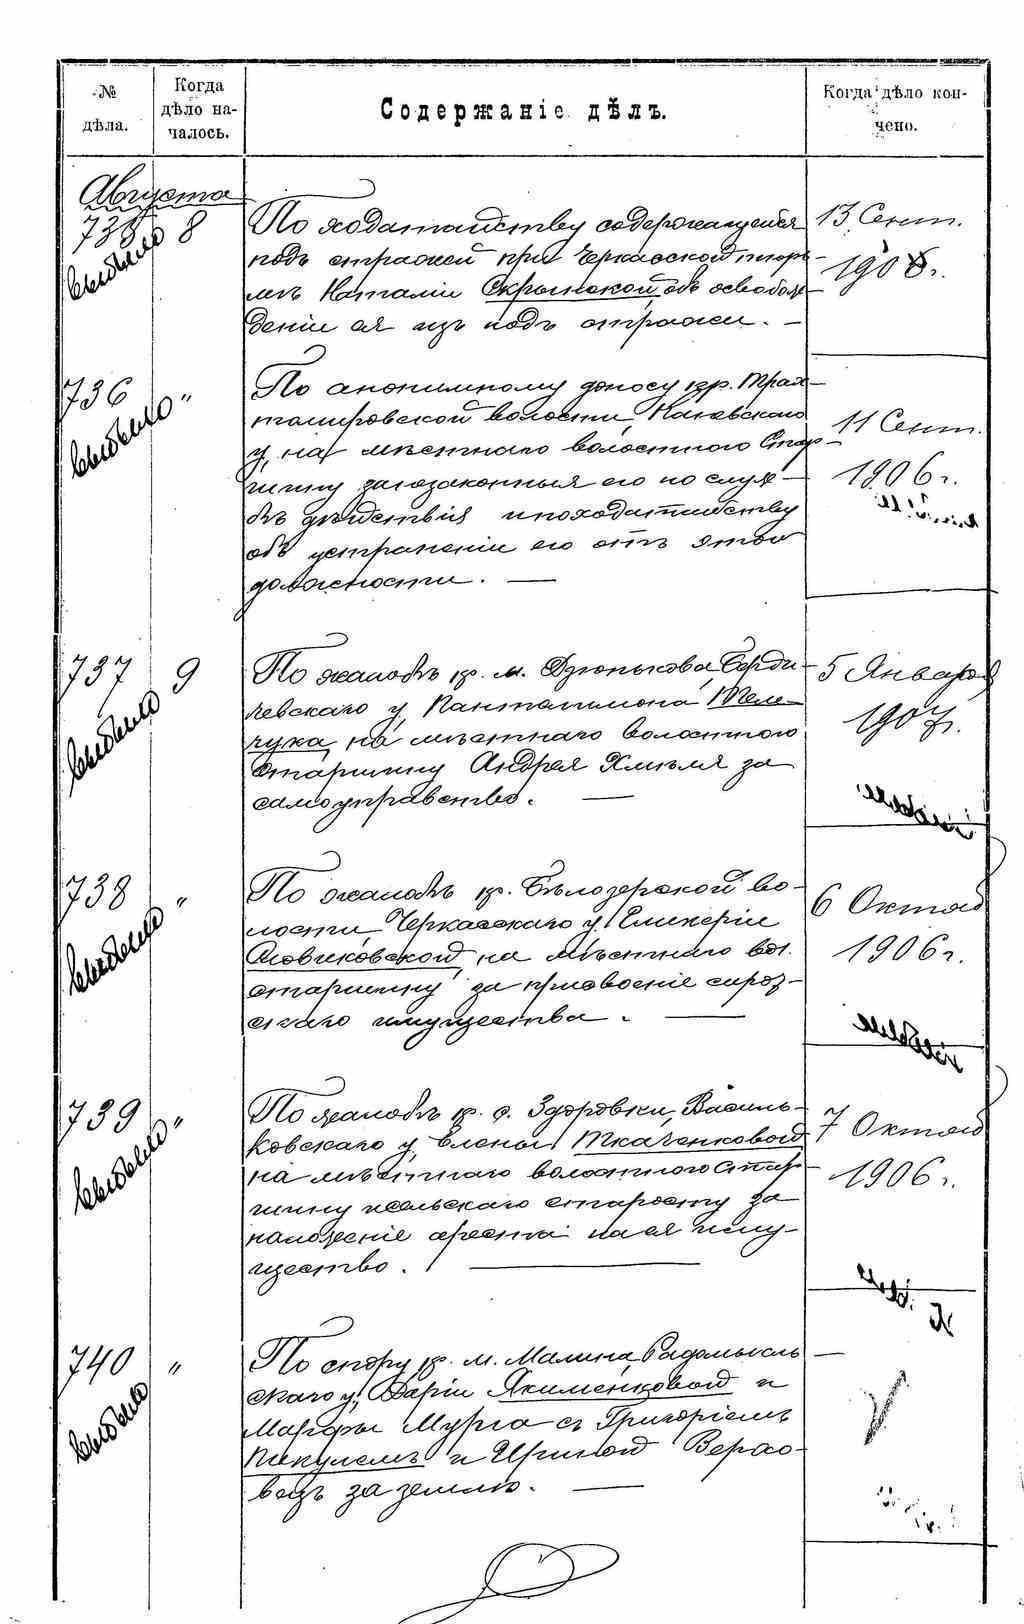 № дѣла.
Когда дѣло началось.
Содержаніе дѣлъ.
Когда дѣло кончено.
Августа
735 8
выбыло
По ходатайству содержащейся
подъ стражей при Черкасской тюрь-
мѣ Наталіи Скрынской объ освобож-
деніи ея изъ подъ стражи. —
13 Сент.
1906 г.
736 "
выбыло
По анонимному доносу кр. Трах-
томировской волости, Каневскаго
у, на мѣстнаго волостного Стар-
шину за незаконныя его по служ-
бѣ дѣйствія и ходатайству
объ устраненіи его отъ этой
должности. —
11 Сент.
1906 г.
737 9
выбыло
По жалобѣ кр. м. Дзюнькова, Берди-
чевскаго у, Пантелимона Мель-
чука, на мѣстнаго волостного
старшину Андрея Хмѣля за
самоуправство. —
5 Января
1907 г.
738 "
выбыло
По жалобѣ кр. Бѣлозерской во-
лости, Черкасскаго у, Гликеріи
Словиковской, на мѣстнаго вол.
старшину за присвоеніе сирот-
скаго имущества. —
6 Октяб
1906 г.
739 "
выбыло
По жалобѣ кр. с. Здоровки, Василь-
ковскаго у, Елены Ткаченковой
на мѣстнаго волостного стар-
шину и сельскаго старосту за
наложеніе ареста на ея иму-
щество. —
7 Октяб
1906 г.
740 "
выбыло
По спору кр. м. Малина, Радомысль-
скаго у, Даріи Якименковой и
Марфы Мурга съ Григоріемъ
Пикулемъ и Ириной Верхо-
вецъ за землю. —